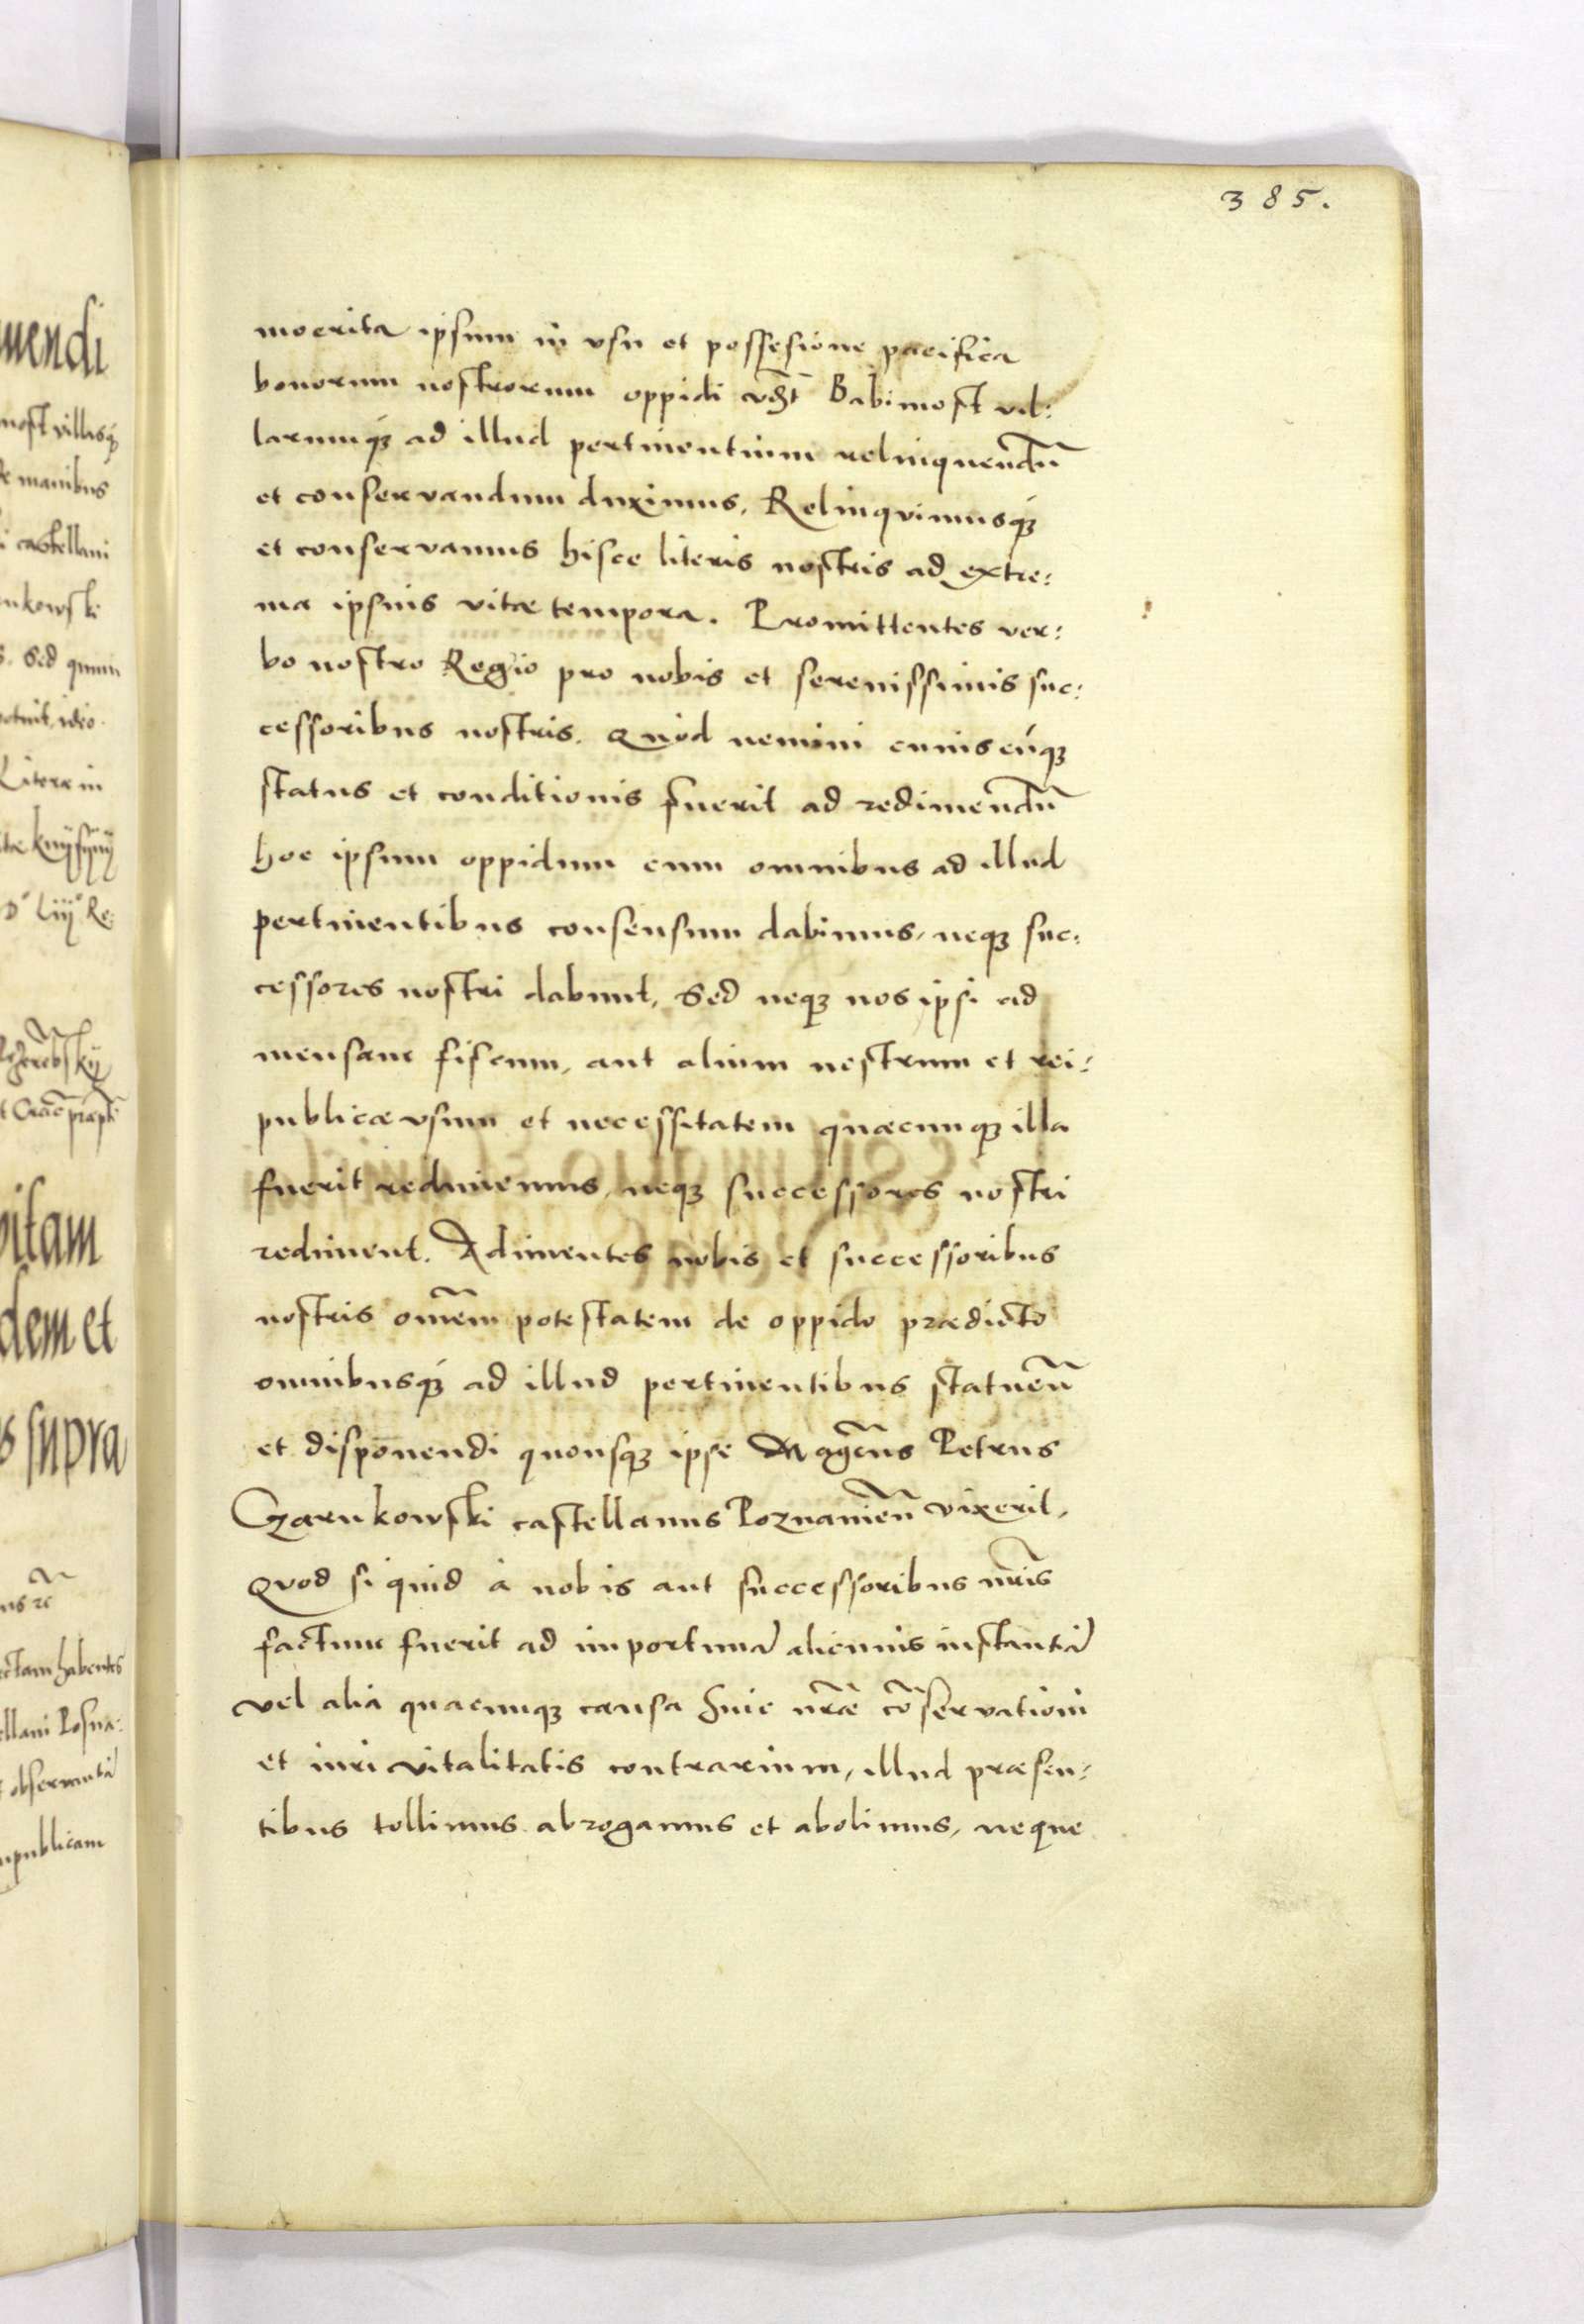 385.
moerita ipsum in vsu et possesione pacifica
bonorum nostrorum oppidi vid̃t Babimost vil:
larumq́ꝫ ad illud pertinentium relinquendũ
et conservandum duximus. Relinqvimusq́ꝫ
et conservamus hisce literis nostris ad extre:
ma ipsius vitæ tempora. Promittentes ver:
bo nostro Regio pro nobis et serenissimis suc:
cessoribus nostris. Quod nemini cuiuscúqꝫ
status et conditionis fuerit ad redimendũ
hoc ipsum oppidum cum omnibus ad illud
pertinentibus consensum dabimus, neqꝫ suc:
cessores nostri dabunt, Sed neqꝫ nos ipsi ad
mensam fiscum, aut alium nostrum et rei:
publicæ vsum et necessitatem quæcunqꝫ illa
fuerit redimemus, neqꝫ successores nostri
rediment. Adimentes nobis et successoribus
nostris om̃em potestatem de oppido prædicto
omnibusq́ꝫ ad illud pertinentibus statueñ
et disponendi quousqꝫ ipse Magc̃us Petrus
Czarnkowski castellanus Poznanieñ vixerit,
Quod si quid à nobis aut successoribus nr̃is
factum fuerit ad importunã alicuius instantiã
vel alia quacunqꝫ causa huic nr̃æ cõservationi
et iuri vitalitatis contrarium, illud præsen:
tibus tollimus abrogamus et abolimus, neque
mendi
most villasq́ꝫ
manibus
castellani
nkowski
Sed quum
ideo
Literæ in
vitam
dem et
supra
ctam habentes
ellani Posna:
observantiã
publicam